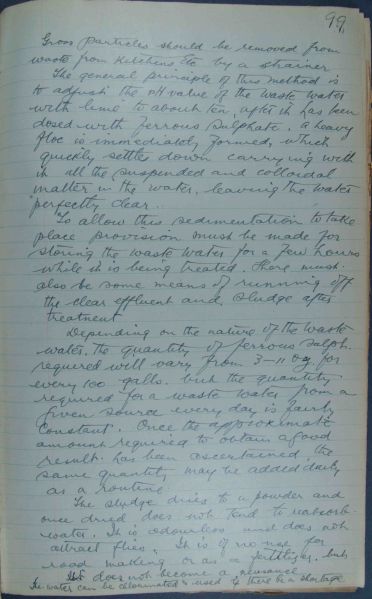 99.
Gross particles should be removed from
waste from Kitchens Etc by a strainer
The general principle of this method is
to adjust the pH value of the waste water
with lime to about ten, after it has been
dosed with Ferrous Sulphate. A heavy
floc is immediately formed, which
quickly settles down carrying with
it all the suspended and colloidal
matter in the water, leaving the water
perfectly clear.
To allow this sedimentation to take
place provision must be made for
storing the waste water for a few hours
while it is being treated. There must
also be some means of running off
the clear effluent and sludge after
treatment
Depending on the nature of the waste
water, the quantity of ferrous sulph.
required will vary from 3-11 og. for
every 100 galls. but the quantity
required for a waste water from a
given source every day is fairly
constant. Once the approximate
amount required to obtain a good
result has been ascertained the
same quantity may be added daily
as a routine
The sludge dries to a powder and
once dried does not tend to reabsorb
water. It is odourless and does not
attract flies. It is of no use for
road making or as a fertiliser. but
does not become a nuisance
The water can be chlorinated & used if there be a shortage.